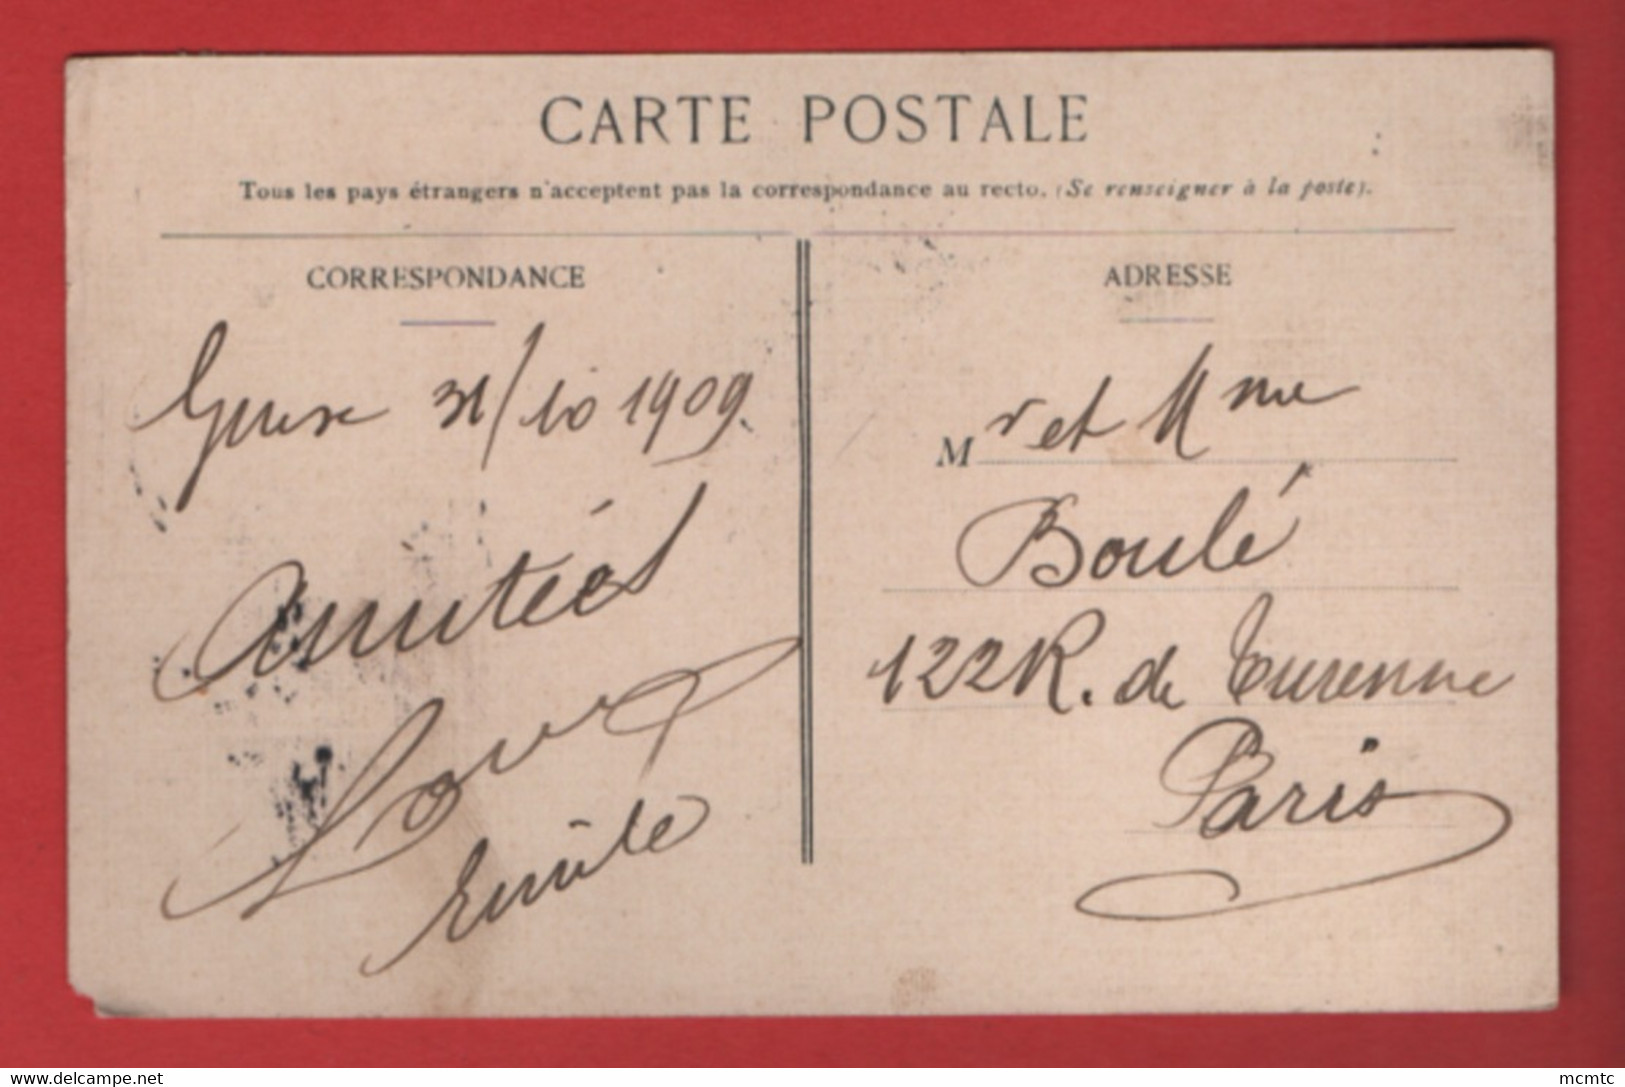 CARTE POSTALE
Tous les pays étrangers n'acceptent pas la correspondance au recto. (Se renseigner à la poste).
CORRESPONDANCE
31/10 1909
Amitiés
Emile
ADRESSE
Mr et Mme
Boulé
122 R. de Turenne
Paris
Delcampe.net
mcmtc